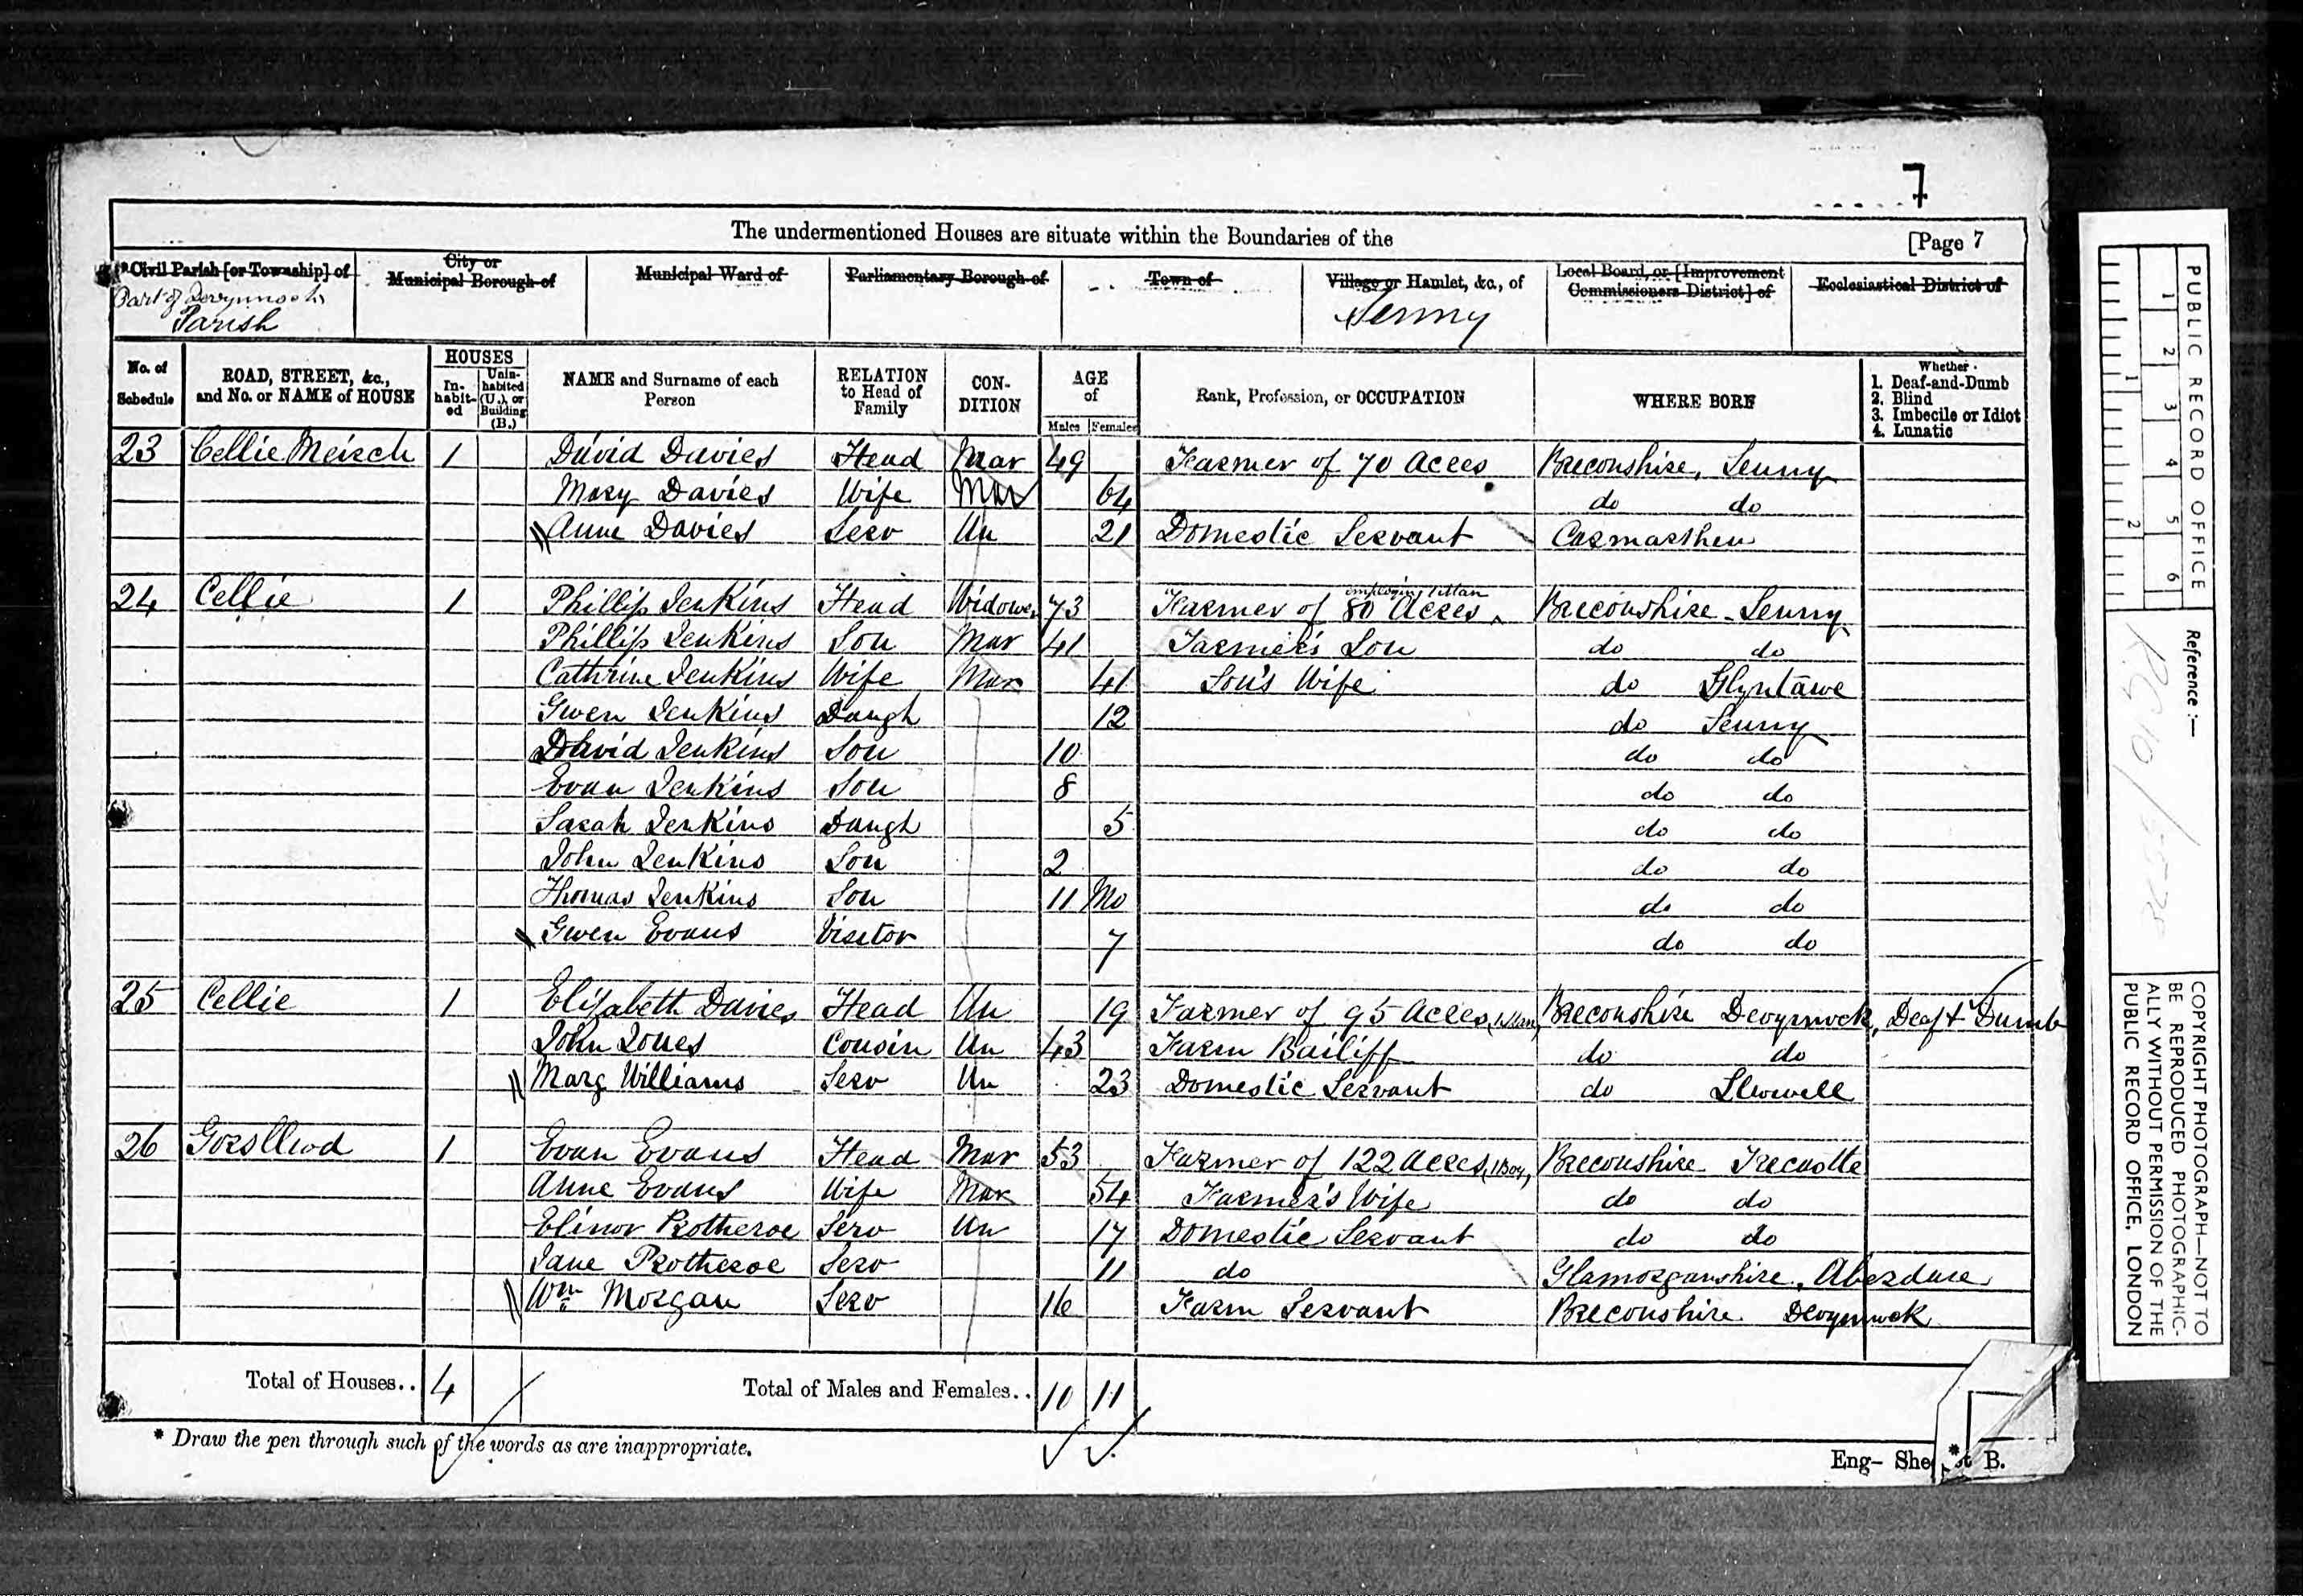 7
The undermentioned Houses are situate within the Boundaries of the
[Page 7
Civil Parish [or Township] of
Part of Devynnock
Parish
City or
Municipal Borough of
Municipal Ward of
Parliamentary Borough of
Town of
Village or Hamlet, &c., of
Senny
Local Board, or [Improvement
Commissioners District] of
Ecclesiastical District of
No. of
Schedule
ROAD, STREET, &c.,
and No. or NAME of HOUSE
HOUSES
In-
habit-
ed
Unin-
habited
(U.), or
Building
(B.)
NAME and Surname of each
Person
RELATION
to Head of
Family
CON-
DITION
AGE
of
Males Females
Rank, Profession, or OCCUPATION
WHERE BORN
Whether
1. Deaf-and-Dumb
2. Blind
3. Imbecile or Idiot
4. Lunatic
23 Cellie Meirch 1 David Davies Head Mar 49 Farmer of 70 Acres Breconshire, Senny
Mary Davies Wife Mar 64 do do
Anne Davies Serv Un 21 Domestic Servant Carmarthen
24 Cellie 1 Phillip Jenkins Head Widower 73 Farmer of 80 Acres employing 1 Man Breconshire - Senny
Phillip Jenkins Son Mar 41 Farmer's Son do do
Cathrine Jenkins Wife Mar 41 Son's Wife do Glyntawe
Gwen Jenkins Daugh 12 do Senny
David Jenkins Son 10 do do
Evan Jenkins Son 8 do do
Sarah Jenkins Daugh 5 do do
John Jenkins Son 2 do do
Thomas Jenkins Son 11 Mo do do
Gwen Evans Visitor 7 do do
25 Cellie 1 Elizabeth Davies Head Un 19 Farmer of 95 Acres, (1 Man) Breconshire Devynnock, Deaf + Dumb
John Jones Cousin Un 43 Farm Bailiff do do
Marg Williams Serv Un 23 Domestic Servant do Llowell
26 Gorsllwd 1 Evan Evans Head Mar 53 Farmer of 122 Acres, (1 Boy) Breconshire Trecastle
Anne Evans Wife Mar 54 Farmer's Wife do do
Elinor Protheroe Serv Un 17 Domestic Servant do do
Jane Protheroe Serv 11 do Glamorganshire, Aberdare
Wm Morgan Serv 16 Farm Servant Breconshire Devynnock
Total of Houses.. 4
Total of Males and Females.. 10 11
* Draw the pen through such of the words as are inappropriate.
Eng- She B.
PUBLIC RECORD OFFICE
1 2 3 4 5 6
1 2
Reference :—
RG10/5578
COPYRIGHT PHOTOGRAPH—NOT TO
BE REPRODUCED PHOTOGRAPHIC-
ALLY WITHOUT PERMISSION OF THE
PUBLIC RECORD OFFICE, LONDON